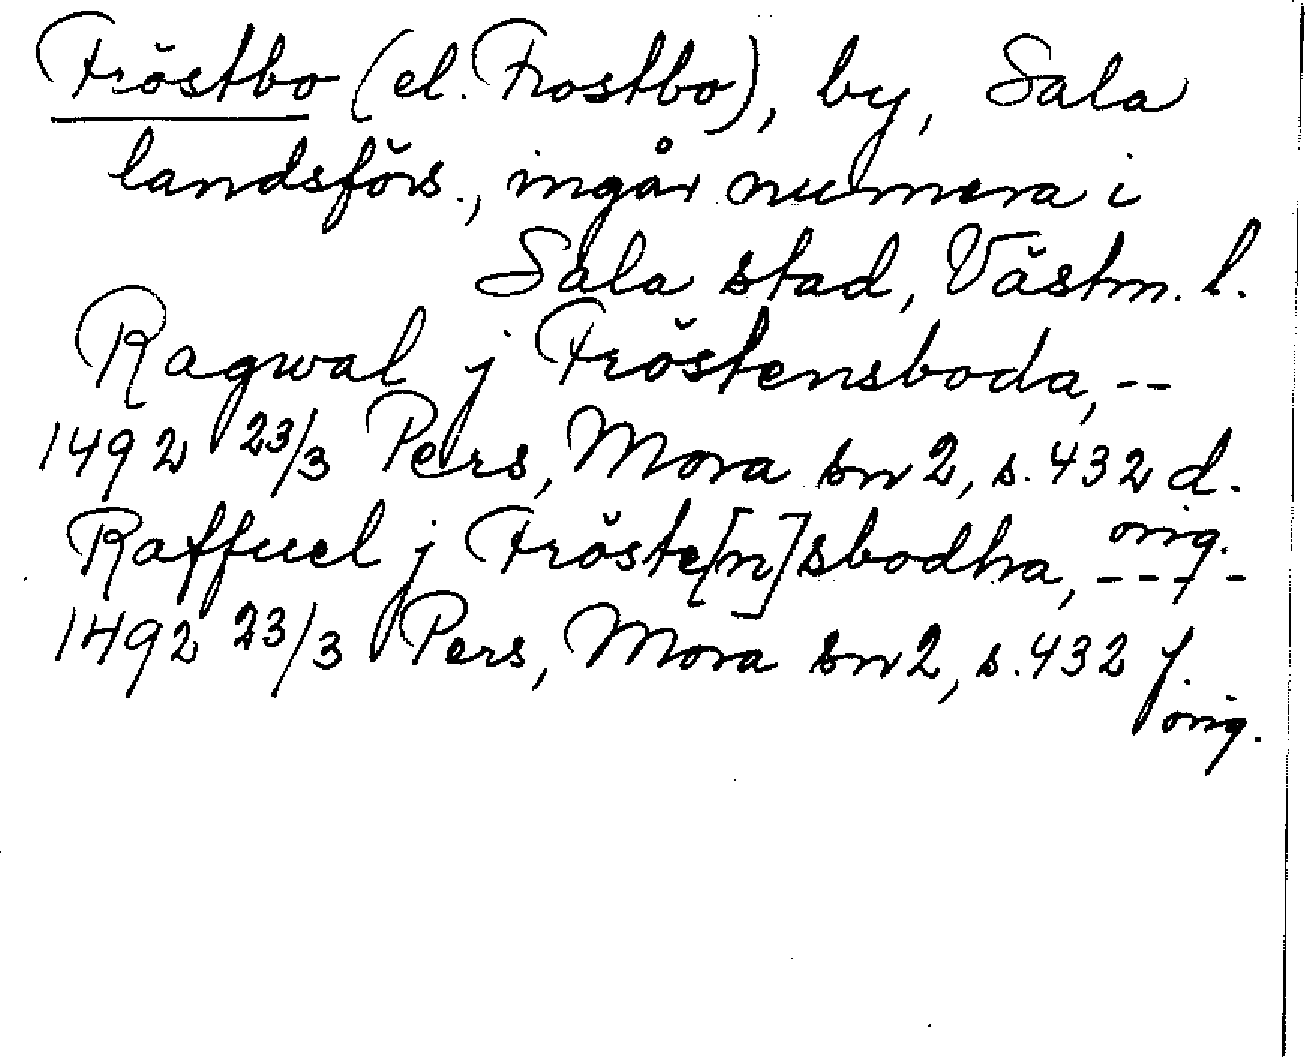 Fröstbo (el. Frostbo), by, Sala
landsförs., ingår numera i
Sala stad, Västm. l.
Ragwal j Fröstensboda, --
1492 23/3 Pers, Mora sn 2, s. 432 d.
orig.
Raffuel j Fröste[n]sbodha, ----
1492 23/3 Pers, Mora sn 2, s. 432 f.
orig.